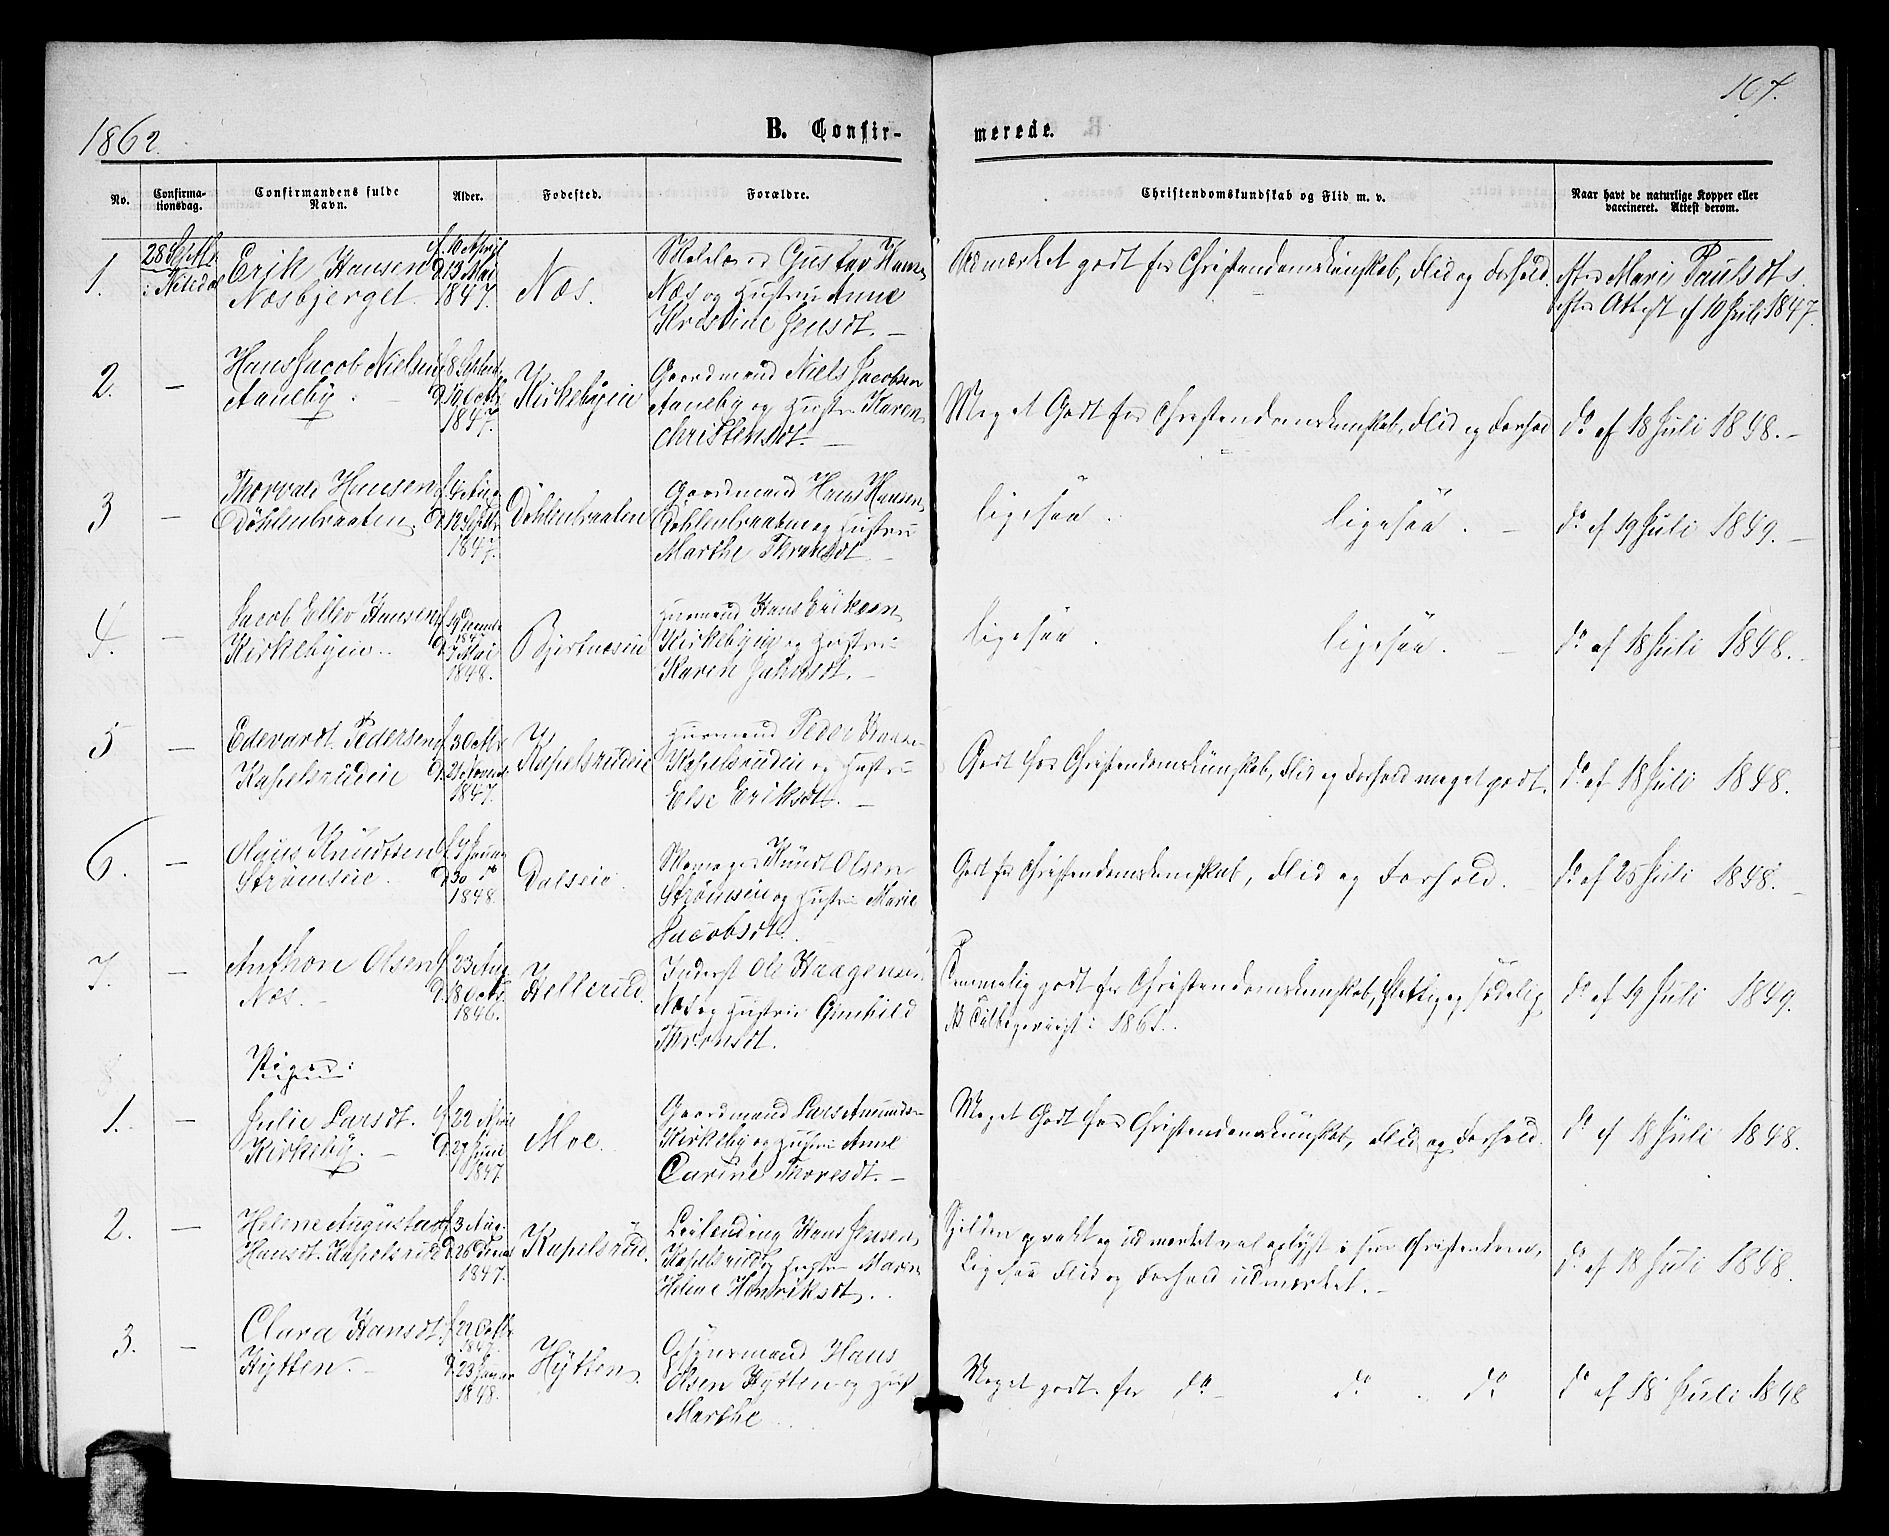 1862.
B. Confir-
merede.
107.
No.
Confirma-
tionsdag.
Confirmandens fulde
Navn.
Alder.
Fødested.
Forældre.
Christendomskundskab og Flid m. v.
Naar havt de naturlige Kopper eller
vaccineret. Attest derom.
1.
28 Septbr
i Nitedal
Erik Hansen
Næsbjerget.
f. 10 April
d. 13 Mai
1847.
Næs.
Gustav Hans
Næs og Hustru Anne
Kristine Jensdt. –
Udmærket godt for Christendomskundskab, Flid og Forhold.
efter Mari Paulsdts
Attest af 10 Juli 1847.
2. –
Hans Jacob Nielsen
Aaneby. –
f. 8 Septbr
d. 10 Octbr
1847.
Kirkebyeie
Gaardmand Niels Jacobsen
Aaneby og Hustru Karen
Christensdt. –
Meget Godt for Christendomskundskab, Flid og Forhold
do af 18 Juli 1848. –
3 –
Thorvald Hansen
Døhlenbraaten
d. 12 Septbr
1847.
Døhlenbraaten
Gaardmand Hans Hansen
Døhlenbraaten og Hustru
Marthe
ligesaa. ligesaa. –
do af 19 Juli 1849. –
4. –
Jacob Ellev Hansen
Kirkebyeie.
f. 19 Decembr
1847
d. 7 Mai
1848.
Bjertnæseie
Husmand Hans Eriksen
Kirkebyeie og Hustru
Karen Johnsdt. –
ligesaa. ligesaa. –
do af 18 Juli 1848. –
5 –
Edevardt Pedersen
Kapelsrudeie
f. 3 Octbr
d. 21 Novembr
1847.
Kapelsrudeie
Husmand Peder
Kapelsrudeie og Hustru
Else Eriksdt. –
Godt for Christendomskundskab, Flid og Forhold meget godt.
do af 18 Juli 1848.
6. –
Olaus Knudsen
Strømseie.
f. 7 Januar
d. 30 do
1848.
Dalseie.
Skomager Knudt Olsen
Strømseie og Hustru Marie
Jacobsdt.
Godt for Christendomskundskab, Flid og Forhold. –
do af 25 Juli 1848. –
7. –
Anthon Olsen
Næs. –
f. 23 Aug
d. 18 Octbr.
1846.
Kellerud.
Inderst Ole Haagensen
Næs og Hustru Gunhild
Temmelig godt for Christendomskundskab, Flittig og Sædelig
NB Tilbageviist i 1861.
do af 19 Juli 1849.
Piger:
1. –
Julie Larsdt.
Kirkeby. –
f. 22 April
d. 27 Juni
1847
Moe.
Gaardmand Lars Amunds-
Kirkeby og Hustru Anne
Carine Thoresdt. –
Meget Godt for Christendomskundskab, Flid og Forhold.
do af 18 Juli 1848.
2. –
Helene Augusta
Hansdt. Kapelsrud
f. 3 Aug.
d. 26
1847.
Kapelsrud.
Leilending Hans Jensen
Kapelsrud og Hustru Maren
Helene Henriksdt. –
Sjelden og udmærket vel oplyst i sin Christendom,
Ligesaa Flid og Forhold udmærket. –
do af 18 Juli 1848.
3. –
Clara Hansdt
Hytten. –
f. 21 Octbr
1847.
d. 23 Januar
1848.
Hytten.
Hans
Olsen Hytten og Hust
Marthe
Meget godt for do – do do
do af 18 Juli 1848